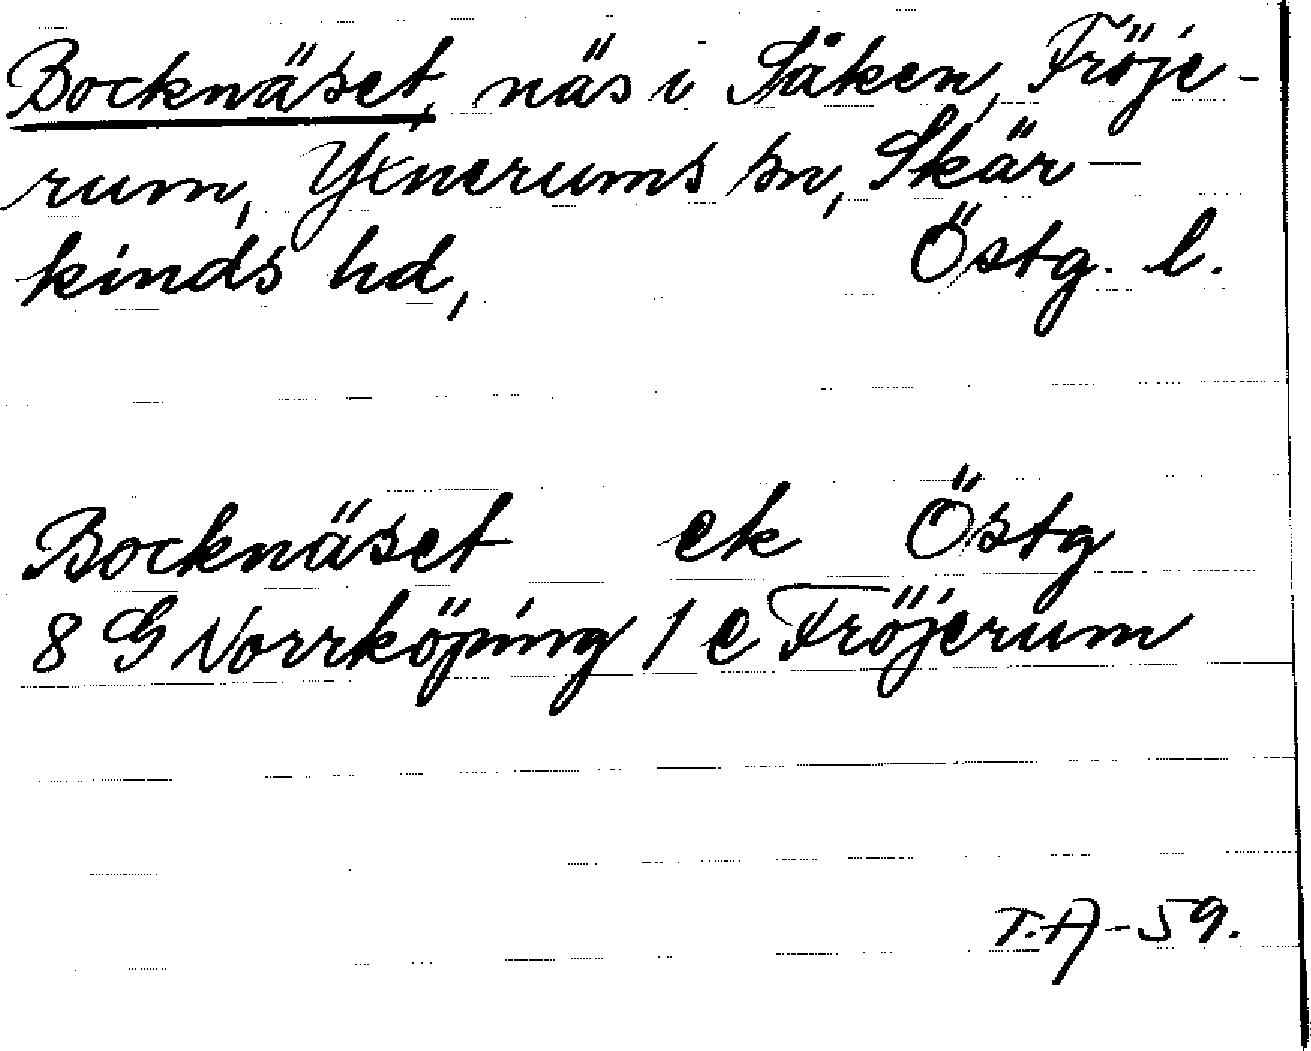 Bocknäset, näs i Såken, Fröje-
rum, Yxnerums sn, Skär-
kinds hd, Östg. l.
Bocknäset ek Östg
8 G Norrköping 1 e Fröjerum
T.A-59.